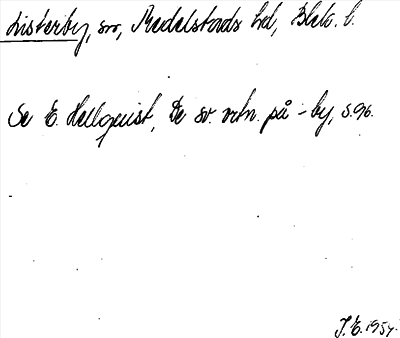 Listerby, sn, Medelstads hd, Blek. l.
Se E. Hellquist, De sv. ortn. på -by, s.96.
J.E. 1954.